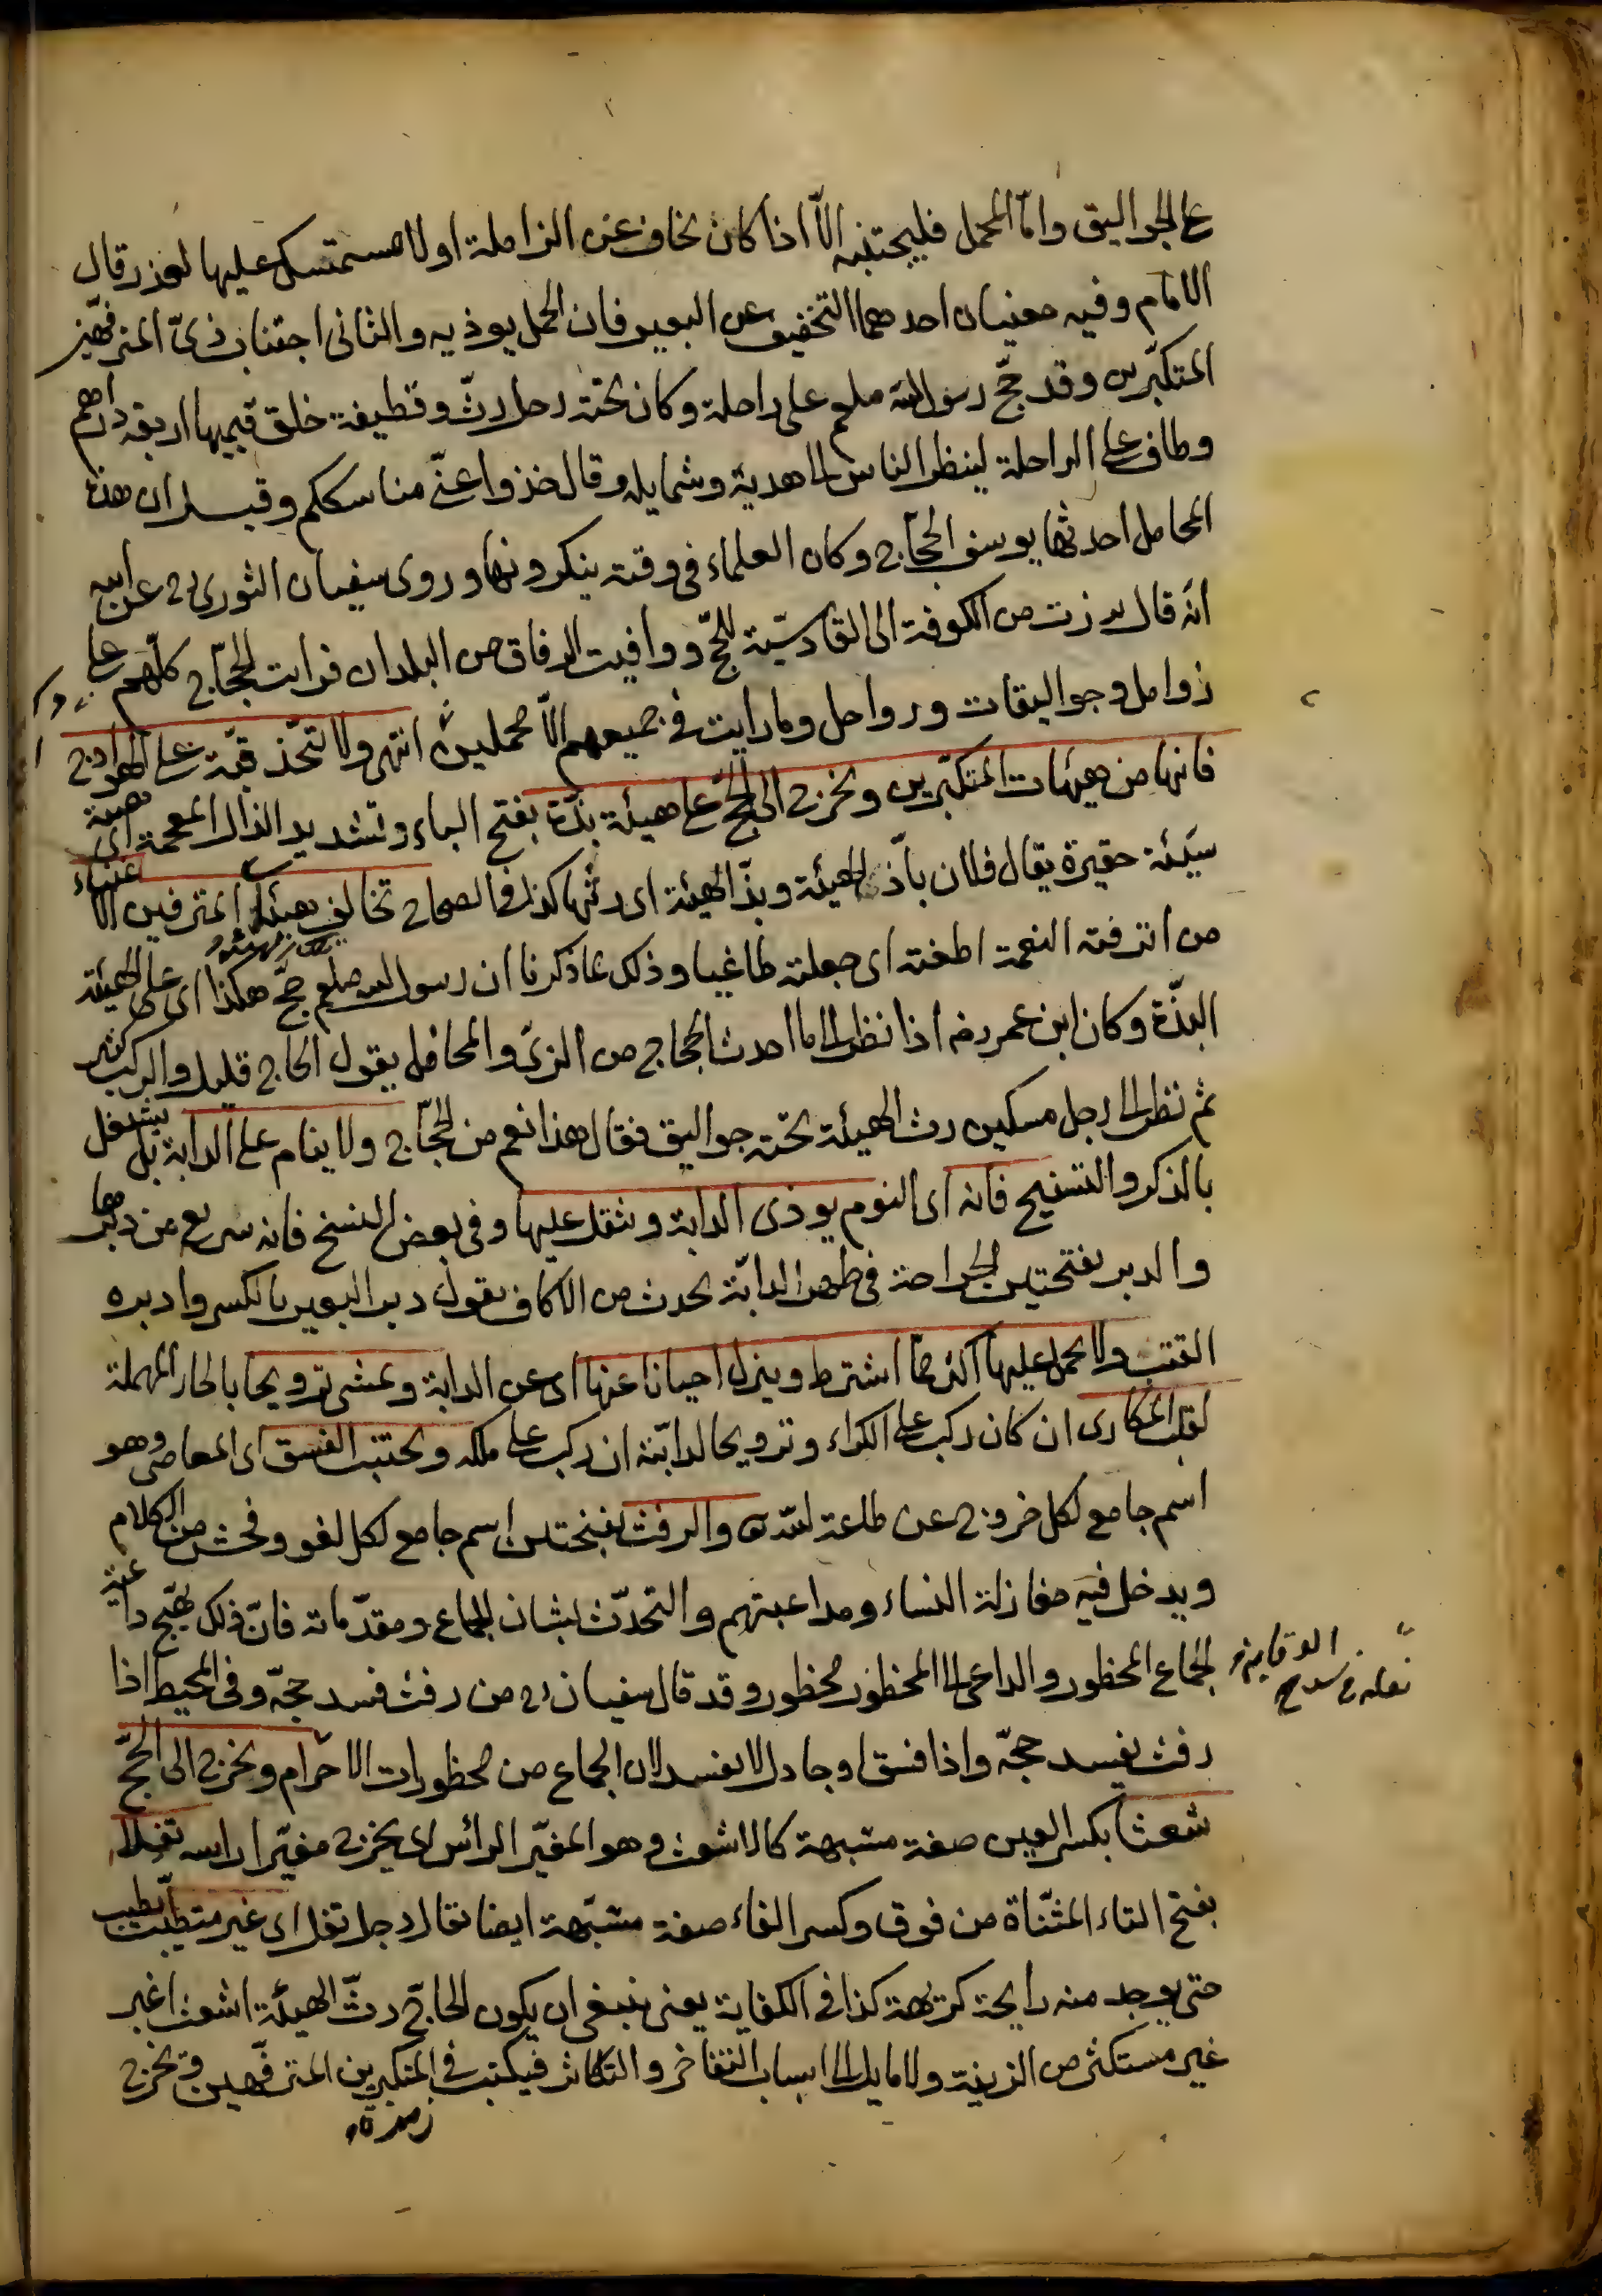 على الجواليق وامّا المحمل فليجتنبه الّا اذا كان يخاف عن الزاملة او لا يستمسك عليها لعذر قال
الامام وفيه معنيان احدهما التخفيف عن البعير فان المحمل يوذيه والثانى اجتناب زىّ المترفهين
المتكبّرين وقد حجّ رسول الله صلعم على راحلة وكان تحته رحل رثّ وقطيفة خلق قيمها اربعة دراهم
وطاف على الراحلة لينظر الناس الى هديه وشمايله وقال خذوا عنّى مناسككم وقيل ان هذه
المحامل احدثها يوسف الحجّاج وكان العلماء فى وقته ينكرونها وروى سفيان الثورى رح عن ابيه
انّه قال برزت من الكوفة الى القادسيّة للحجّ ووافيت الرفاق من البلدان فرايت الحجّاج كلّهم على
زوامل وجواليقات ورواحل وما رايت فى جميعهم الّا محملين انتهى ولا تتّخذ قبّة على الهوادج
فانها من هيئات المتكبّرين ويخرج الى الحجّ على هيئة بذّة بفتح الباء وتشديد الذال المعجمة اى هيئة
سيّئة حقيرة يقال فلان باذّ الهيئة وبذّ الهيئة اى رثّها كذا فى الصحاح تخالف هيئة المترفين الاغنياء
من اترفته النعمة اطغته اى جعلته طاغيا وذلك ما ذكرنا ان رسول الله صلعم حجّ هكذا اى على الهيئة
البذّة وكان ابن عمر رضه اذا نظر الى ما احدث الحجاج من الزىّ والمحافل يقول الحاج قليل والركب كثير
ثم نظر الى رجل مسكين رث الهيئة تحته جواليق فقال هذا نعم من الحجّاج ولا ينام على الدابة بل يشتغل
بالذكر والتسبيح فانه اى النوم يوذى الدابة ويثقل عليها وفى بعض النسخ فانه سريع من دبرها
والدبر بفتحتين الجراحة فى ظهر الدابّة يحدث من الاكاف يقول دبر البعير بالكسر وادبره
القتب ولا يحمل عليها اكثر ممّا اشترط وينزل احيانا عنها اى عن الدابة ويمشى ترويحا بالحاء المهملة
لقلب المكارى ان كان ركب على الكراء وترويحا لدابّته ان ركب على ملكه ويجتنب الفسق اى المعاصى وهو
اسم جامع لكل خروج عن طاعة الله ت والرفث بفتحتين اسم جامع لكل لغو وفحش من الكلام
ويدخل فيه مغازلة النساء ومداعبتهم والتحدّث بشان الجماع ومقدّماته فانّ ذلك يهيّج داعية
الجماع المحظور والداعى الى المحظور محظور وقد قال سفيان رح من رفث فسد حجّه وفى المحيط اذا
رفث يفسد حجّه واذا فسق او جادل لا يفسد لان الجماع من محظورات الاحرام ويخرج الى الحجّ
شعثا بكسر العين صفة مشبهة كالاشعث وهو المغبّر الرائس اى يخرج مغبّرا راسه تفلا
بفتح التاء المثنّاة من فوق وكسر الفاء صفة مشبّهة ايضا يقال رجل تفل اى غير متطيّب
حتى يوجد منه رايحة كريهة كذا فى الكفاية يعنى ينبغى ان يكون الحاجّ رثّ الهيئة اشعث اغبر
غير مستكثر من الزينة ولا مايل الى اسباب التفاخر والتكاثر فيكتب فى المتكبرين المترفّهين ويخرج